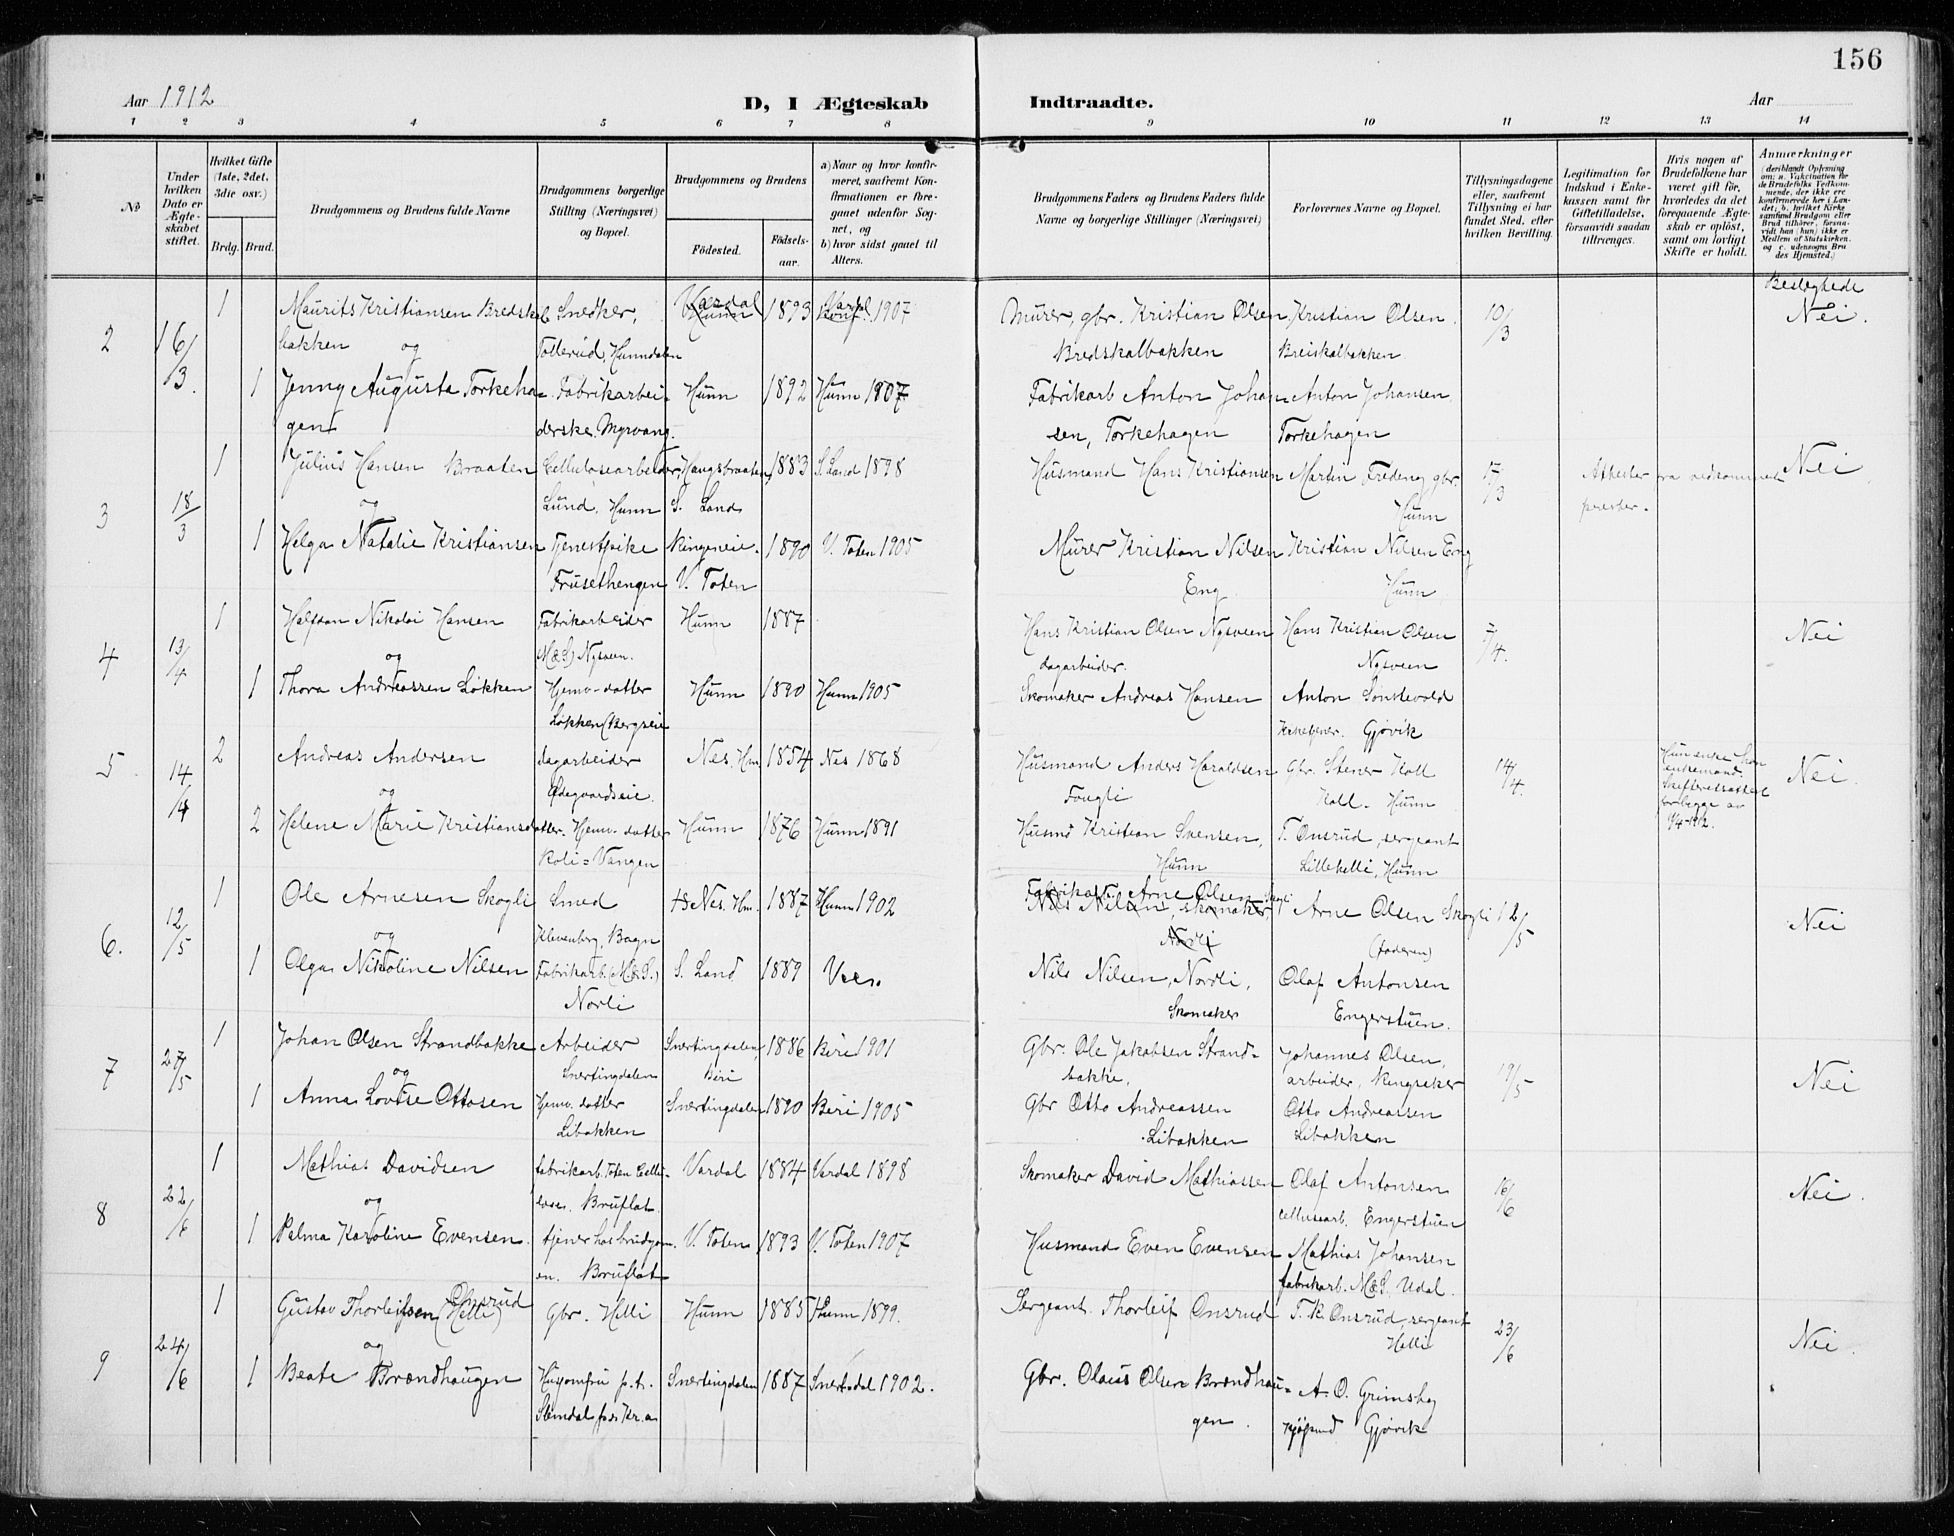 156
Aar 1912
D, I Ægteskab Indtraadte.
Aar
1 2 3 4 5 6 7 8 9 10 11 12 13 14
№
Under hvilken Dato er Ægteskabet stiftet.
Hvilket Gifte (1ste, 2det, 3die osv.)
Brdg. Brud.
Brudgommens og Brudens fulde Navne
Brudgommens borgerlige Stilling (Næringsvei) og Bopæl.
Brudgommens og Brudens
Fødested.
Fødselsaar.
a) Naar og hvor konfirmeret, saafremt Konfirmationen er foregaaet udenfor Sognet, og
b) hvor sidst gaaet til Alters.
Brudgommens Faders og Brudens Faders fulde Navne og borgerlige Stillinger (Næringsvei)
Forlovernes Navne og Bopæl.
Tillysningsdagene eller, saafremt Tillysning ei har fundet Sted, efter hvilken Bevilling.
Legitimation for Indskud i Enkekassen samt for Giftetilladelse, forsaavidt saadan tiltrænges.
Hvis nogen af Brudefolkene har været gift før, hvorledes da det foregaaende Ægteskab er opløst, samt om lovligt Skifte er holdt.
Anmærkninger (deriblandt Oplysning om: a. Vakcination for de Brudefolks Vedkommende, der ikke ere konfirmerede her i Landet; b. hvilket Kirkesamfund Brudgom eller Brud tilhører, forsaavidt han (hun) ikke er Medlem af Statskirken, og c. udensogns Brudes Hjemsted.)
Beslegtede
2 16/3 1 Maurits Kristiansen Bredskal- Snedker, Vardal 1893 Vardal 1907 Murer, gbr. Kristian Olsen, Kristian Olsen. 10/3 Nei.
bakken og Tollerud, Hunndalen Bredskalbakken Breiskalbakken
1 Jenny Augusta Torkeha- Fabrikarbei- Hunn 1892 Hunn 1907 Fabrikarb Anton Johan- Anton Johansen
gen derske. Myrvang. sen, Torkehagen Torkehagen
3 18/3 1 Julius Hansen Braaten Cellulosearbeider, Haugsbraaten, 1883 S. Land 1898 Husmand Hans Kristiansen Martin Fredeng gbr. /3 Attester fra vedkommende Nei
og Lund, Hunn S. Land Hunn prester.
1 Helga Natalie Kristiansen Tjenestpike Ringeneie. 1890 V. Toten 1905 Murer Kristian Nilsen Kristian Nilsen Eng
Frusethengen V. Toten Eng Hunn
4 13/4 1 Halfdan Nikolai Hansen Fabrikarbeider Hunn 1887 Hans Kristian Olsen Nysveen Hans Kristian Olsen 7/4. Nei
og (M&S) Nysveen. dagarbeider. Nysveen
1 Thora Andreassen Løkken Hjemv. datter Hunn 1890 Hunn 1905 Skomaker Andreas Hansen Anton Sønstevold
Løkken (Bergseie Gjøvik
5. 14/4 2 Andreas Andersen dagarbeider Nes, Hm. 1854 Nes 1868 Husmand Anders Haraldsen Gbr. Stener Koll 14/4. Hun enke Han enkemand. Skifteretsattest for begge av Nei.
og Ødegaardseie. Fougli Koll. Hunn
2 Helene Marie Kristiansdatter. Hjemv. datter Hunn 1876 Hunn 1891 Husmd Kristian Svensen, T. Onsrud, sergeant
Koli-Vangen Hunn Lillehelli, Hunn
6. 12/5 1 Ole Arnesen Skogli Smed Nes. Hm. 1887 Hunn 1902 Fabrikarb. Arne Olsen Skogli Arne Olsen Skogli 12/5 Nei
Nils Nilsen, skomaker Nordli
og Klevenberg, Bagn (faderen)
1 Olga Nikoline Nilsen Fabrikarb. (M&S.) S. Land 1889 Nils Nilsen, Nordli, Olaf Antonsen
Norli Skomaker Engerstuen.
7 27/5 1 Johan Olsen Strandbakke Arbeider Snertingdalen, 1886 Biri 1901 Gbr. Ole Jakobsen Strand- Johannes Olsen, 19/5 Nei
og Snertingdalen Biri bakke, arbeider, Ringsaker
1 Anna Lovise Ottosen Hjemv. datter Snertingdalen 1890 Biri 1905 Gbr Otto Andreassen Otto Andreassen
Libakken Libakken Libakken
8 22/6 1 Mathias Davidsen fabrikarb. Toten Cellu- Vardal 1884 Vardal 1898 Skomaker David Mathiassen Olaf Antonsen 16/6 Nei.
og lose. Bruflat. cellulosearb. Engerstuen
1 Palma Karoline Evensen. tjener hos brudgom- V. Toten 1893 V. Toten 1907 Husmand Even Evensen Mathias Johansen
en. Bruflat fabrikarb. M&S. Udal.
9 24/6 1 Gustav Thorleifsen Onsrud (Helli) Gbr. Helli Hunn 1885 Hunn 1899. Sergeant. Thorleif Onsrud T. K. Onsrud, sergeant 23/6 Nei.
og Helli
1 Beate Brændhaugen Husjomfru p.t. Snertingdalen 1887 Snertdal 1902. Gbr. Olaus Olsen Brændhau- A. O. Grimshøy
Slemdal pr. Kr.a gen. kjøpmd Gjøvik